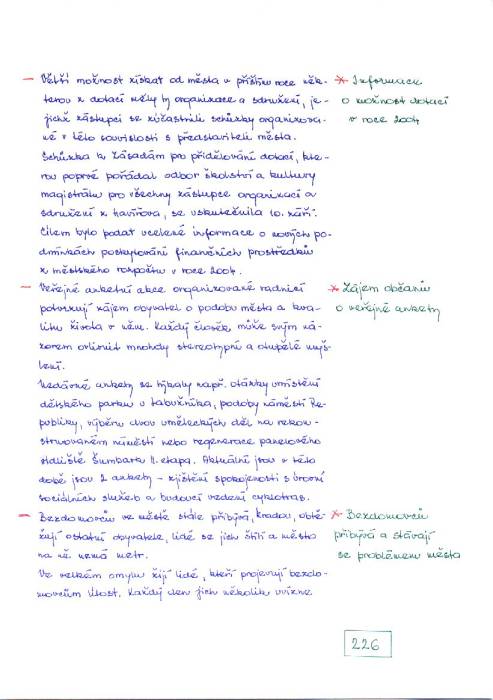 – Větší možnost získat od města v příštím roce něk-
terou z dotací měly ty organizace a sdružení, je-
jichž zástupci se zúčastnili schůzky organizova-
né v této souvislosti s představiteli města.
Schůzka k Zásadám pro přidělování dotací, kte-
rou poprvé pořádal odbor školství a kultury
magistrátu pro všechny zástupce organizací a
sdružení z Havířova, se uskutečnila 10. září.
Cílem bylo podat ucelené informace o nových po-
dmínkách poskytování finančních prostředků
z městského rozpočtu v roce 2004.
* Informace
o možnost dotací
v roce 2004
– Veřejné anketní akce organizované radnicí
potvrzují zájem obyvatel o podobu města a kva-
litu života v něm. Každý člověk, může svým ná-
zorem ovlivnit mnohdy stereotypní a otupělé myš-
lení.
Nedávné ankety se týkaly např. otázky umístění
dětského parku u Labužníka, podoby náměstí Re-
publiky, výběru dvou uměleckých děl na rekon-
struovaném náměstí nebo regenerace panelového
sídliště Šumbark II. etapa. Aktuální jsou v této
době jsou 2 ankety – zjištění spokojenosti s úrovní
sociálních služeb a budoucí vedení cyklotras.
* Zájem občanů
o veřejné ankety
– Bezdomovců ve městě stále přibývá, kradou, obtě-
žují ostatní obyvatele, lidé se jich štítí a město
na ně nemá metr.
Ve velkém omylu žijí lidé, kteří projevují bezdo-
movcům lítost. Každý den jich několik uvízne
* Bezdomovců
přibývá a stávají
se problémem města
226